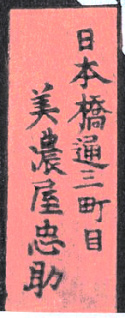 日本橋通三町目
美濃屋忠助